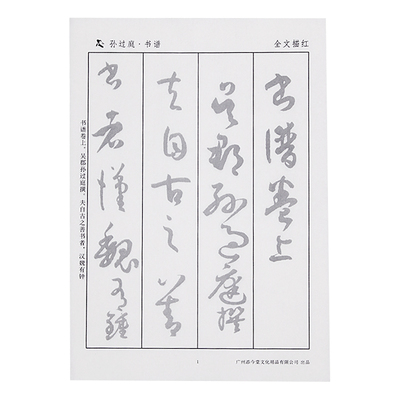 孙过庭·书谱
全文描红
書譜卷上
吳郡孫過庭撰
夫自古之善
書者漢魏有鍾
书谱卷上。吴郡孙过庭撰。夫自古之善书者，汉魏有钟
1
广州 今堂文化用品有限公司 出品